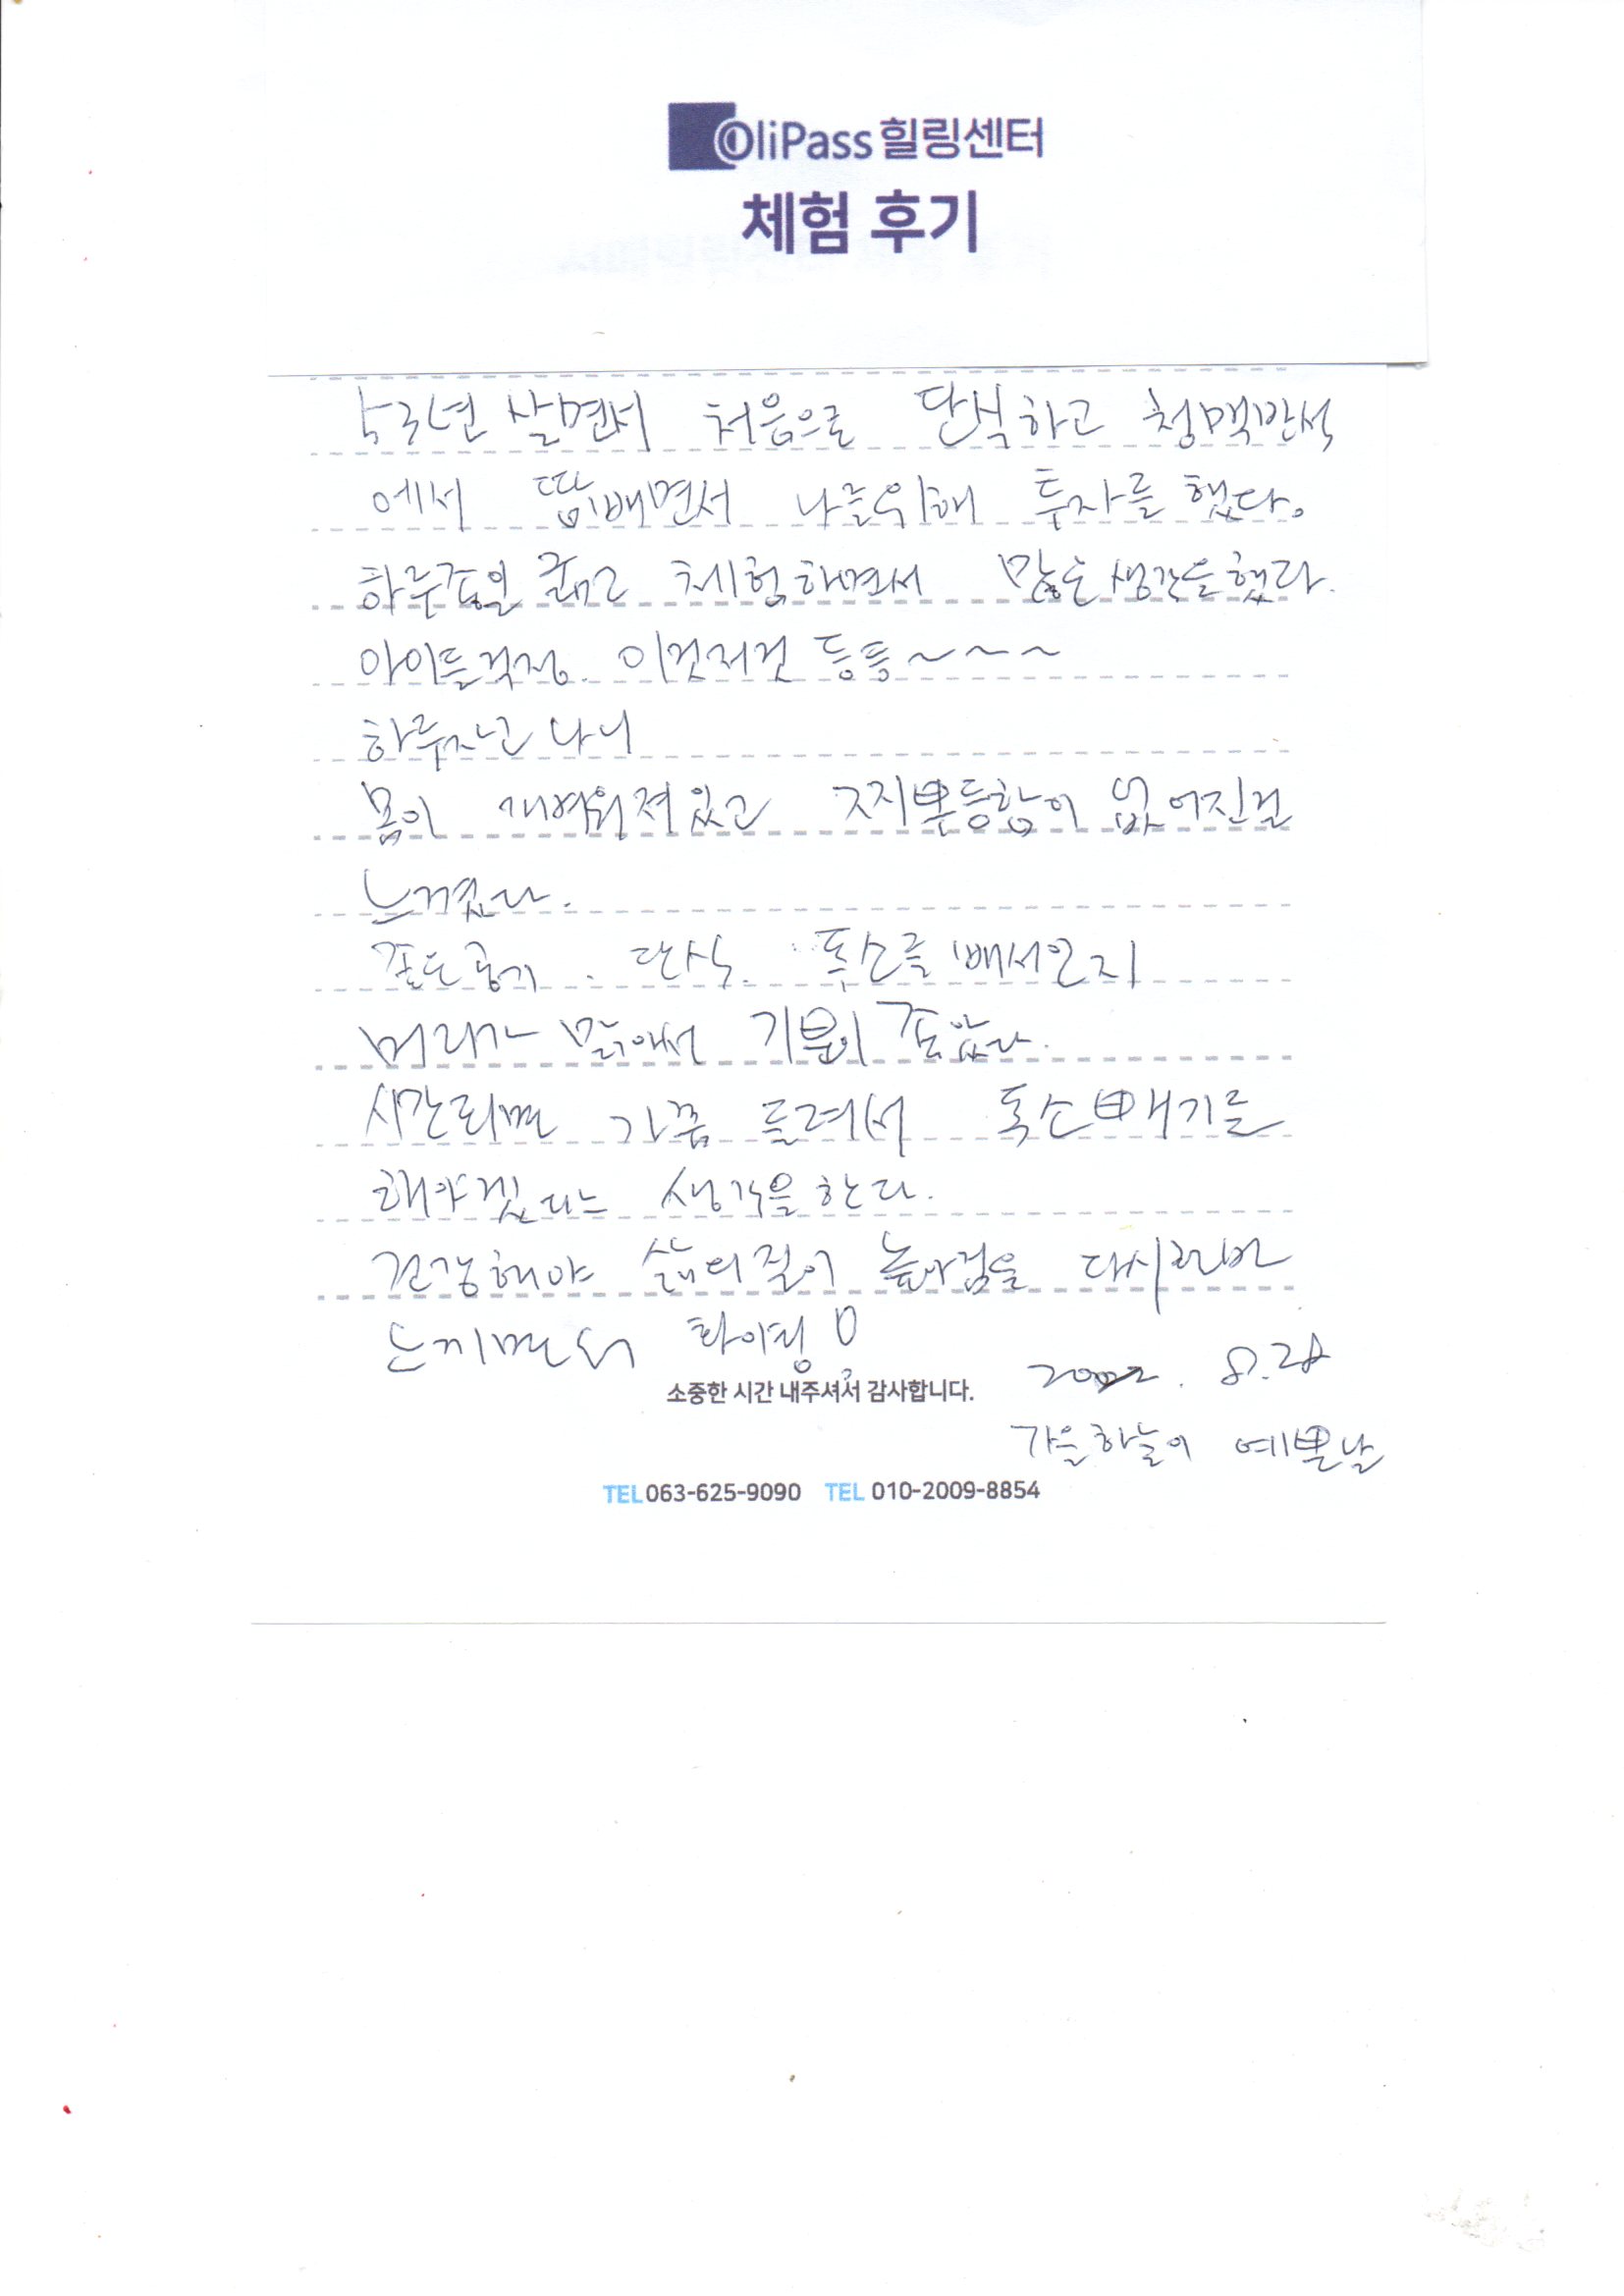 OliPass 힐링센터
체험 후기
53년 살면서 처음으로 단식하고 청맥반석
에서 땀빼면서 나를위해 투자를 했다.
하루종일 굶고 체험하면서 많은생각을했다.
아이들걱정. 이것저것 등등~~~
하루지난나니
몸이 개벼워져있고 찌뿌등함이 없어진걸
느꼈다.
좋은공기. 단식. 독소를 빼서인지
머리가 맑아서 기분이 좋았다.
시간되면 가끔 들려서 독소빼기를
해야겠다는 생각을한다.
건강해야 삶의질이 높아짐을 다시한번
느끼면서 화이팅!
소중한 시간 내주셔서 감사합니다.
8.28
가을하늘이 예쁜날
TEL 063-625-9090 TEL 010-2009-8854